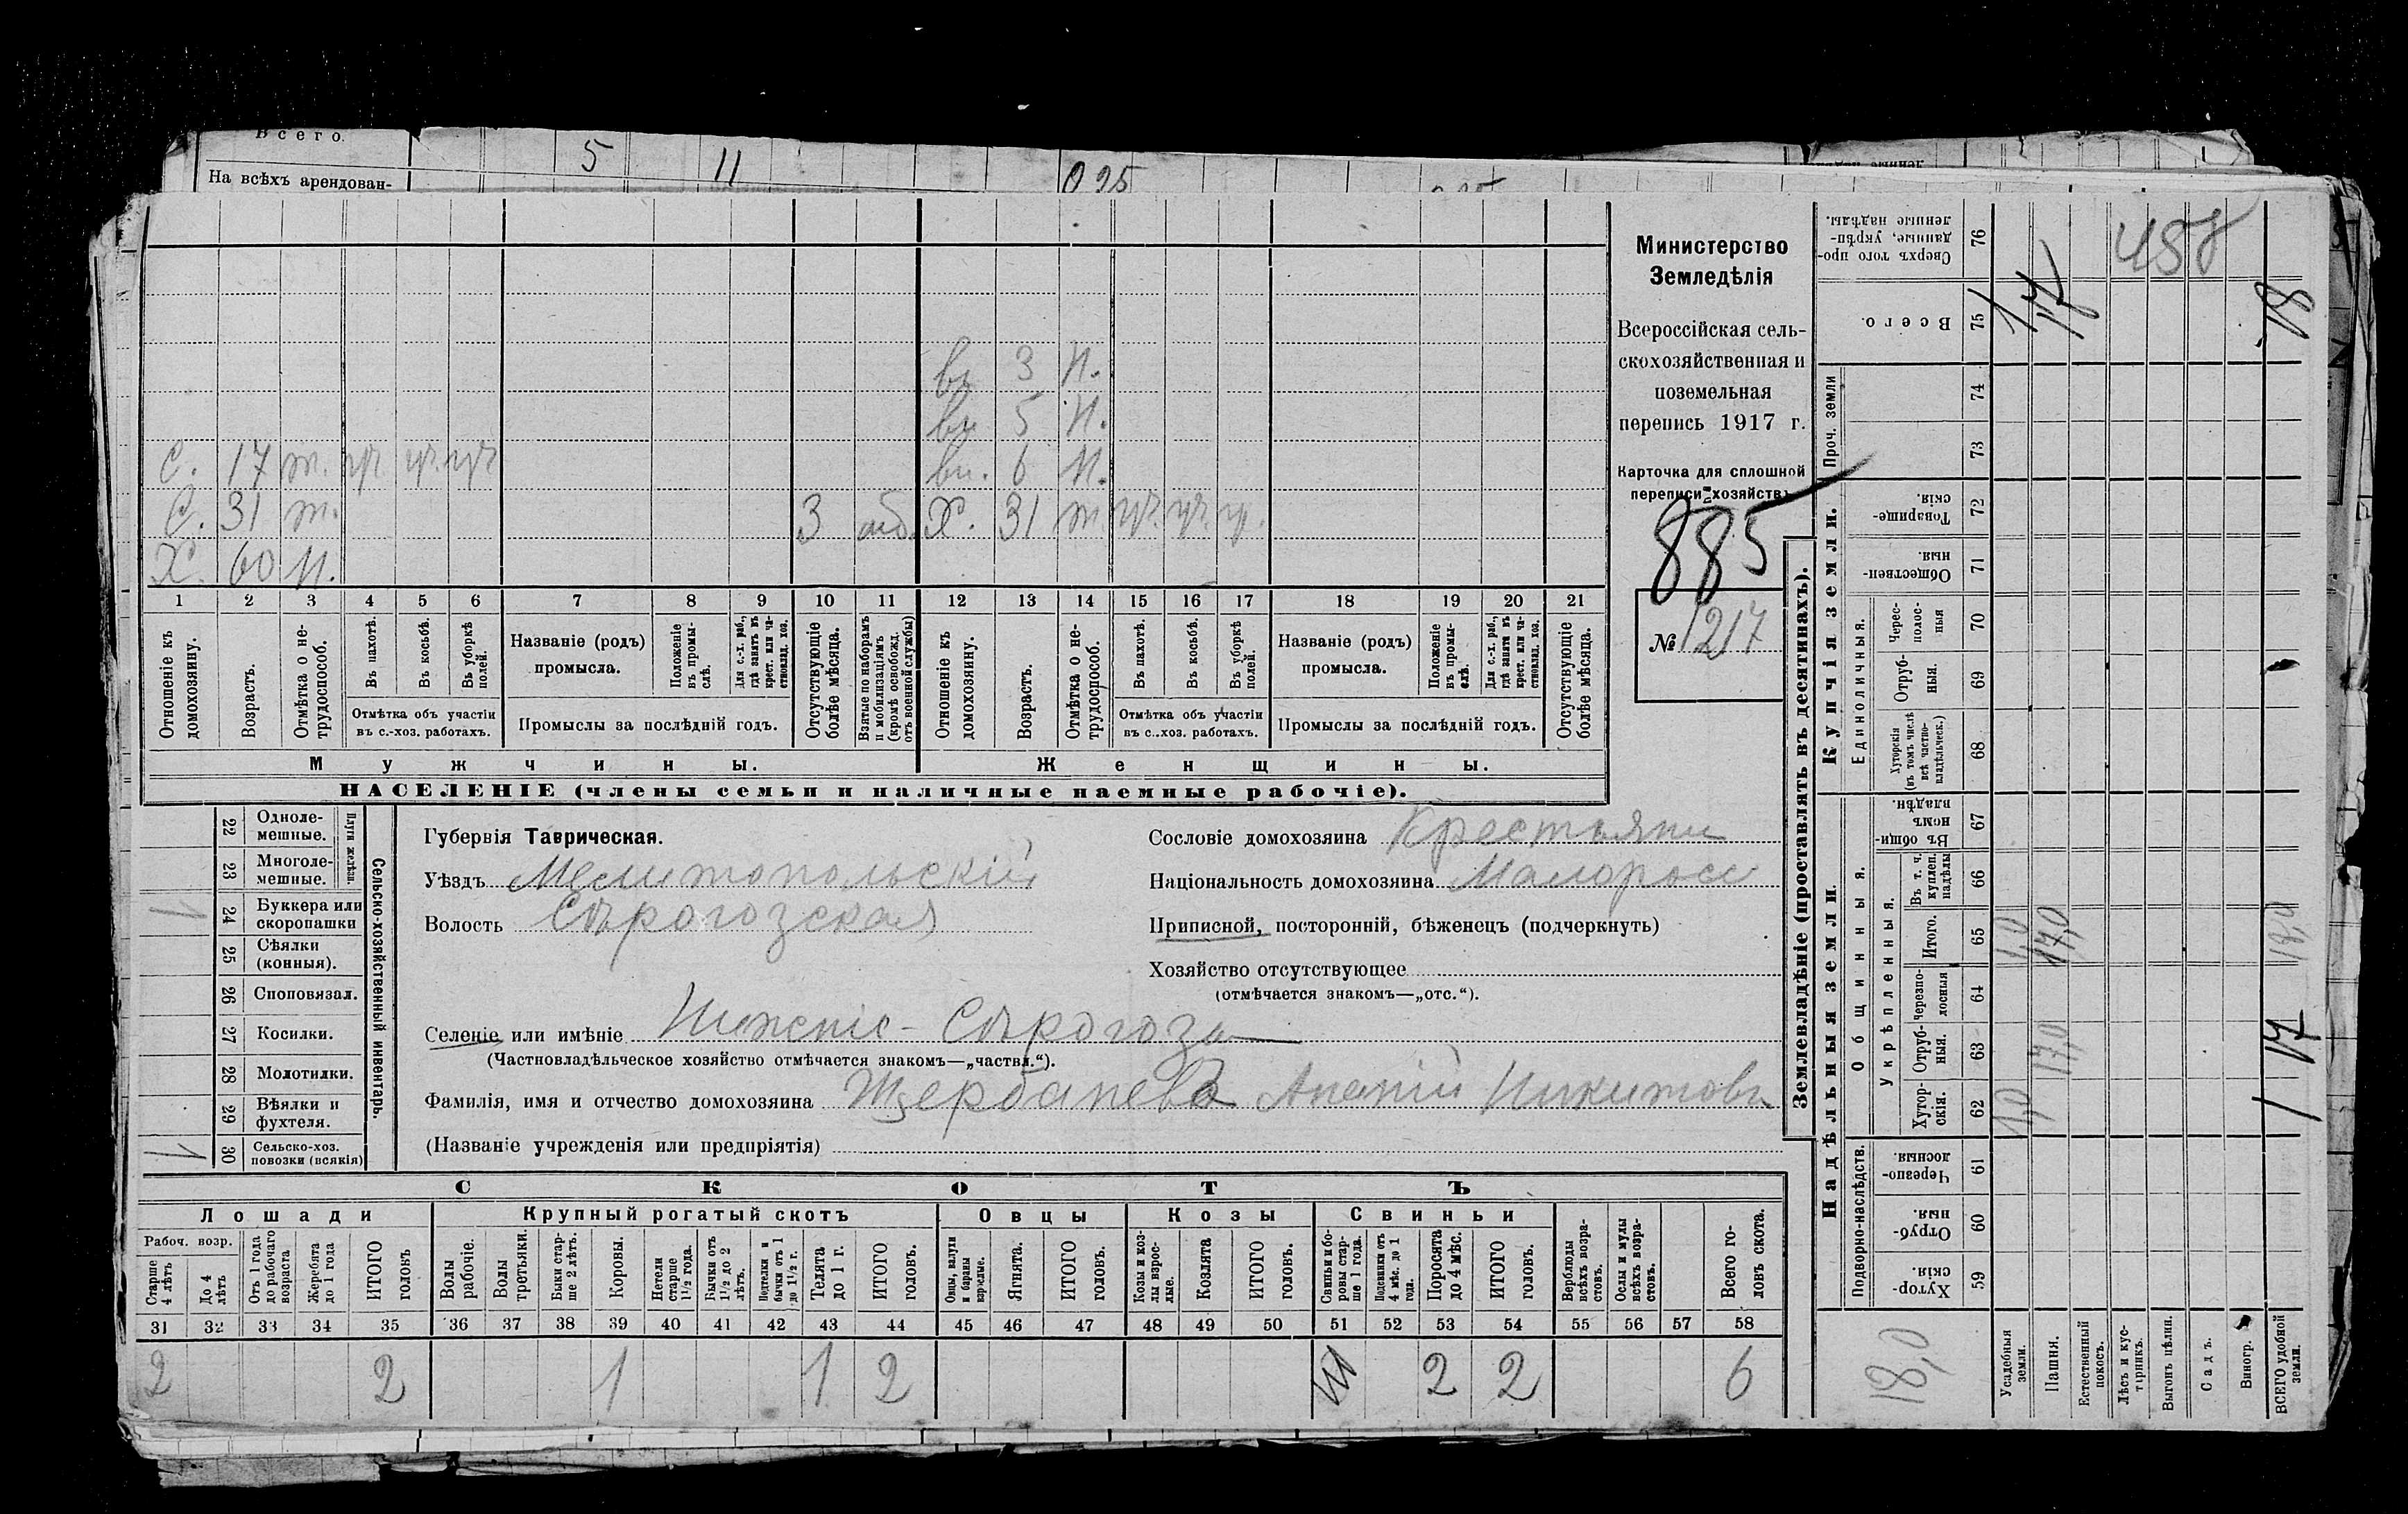 Всего.
5 11 0 25
На всѣхъ арендован-
Министерство
Земледѣлія
Всероссійская сель-
скохозяйственная и
поземельная
перепись 1917 г.
Карточка для сплошной
переписи хозяйствъ
885
№ 1217
вн. 3 н.
вн. 5 н.
с. 17 т. вн. 6 н.
С. 31 т. 3 Х. 31 т.
Х. 60 н.
1 2 3 4 5 6 7 8 9 10 11 12 13 14 15 16 17 18 19 20 21
Отношеніе къ домохозяину.
Возрастъ.
Отмѣтка о не-трудоспособ.
Въ пахотѣ.
Въ косьбѣ.
Въ уборкѣ полей.
Отмѣтка объ участіи
въ с.-хоз. работахъ.
Названіе (родъ)
промысла.
Положеніе въ промы-слѣ.
Для с.-х. раб., гдѣ занятъ въ крест. или ча-стновлад. хоз.
Промыслы за послѣдній годъ.
Отсутствующіе болѣе мѣсяца.
Взятые по наборамъ и мобилизаціямъ (кромѣ освобожд. отъ военной службы)
Отношеніе къ домохозяину.
Возрастъ.
Отмѣтка о не-трудоспособ.
Въ пахотѣ.
Въ косьбѣ.
Въ уборкѣ полей.
Отмѣтка объ участіи
въ с..хоз. работахъ.
Названіе (родъ)
промысла.
Положеніе въ промы-слѣ.
Для с.-х. раб., гдѣ занятъ въ крест. или ча-стновлад. хоз.
Промыслы за послѣдній годъ.
Отсутствующіе болѣе мѣсяца.
Мужчины. Женщины.
НАСЕЛЕНІЕ (члены семьи и наличные наемные рабочіе).
Сельско-хозяйственный инвентарь.
Плуги желѣзн.
22 Одноле-мешные.
23 Многоле-мешные.
24 Буккера или скоропашки
25 Сѣялки (конныя).
26 Сноповязал.
27 Косилки.
28 Молотилки.
29 Вѣялки и фухтеля.
30 Сельско-хоз. повозки (всякія)
Губернія Таврическая.
Уѣздъ Мелитопольскій
Волость Сѣрогозская
Сословіе домохозяина Крестьянин
Національность домохозяина Малоросс
Приписной, посторонній, бѣженецъ (подчеркнуть)
Хозяйство отсутствующее
(отмѣчается знакомъ—„отс.“).
Селеніе или имѣніе Нижніе-Сѣрогозы
(Частновладѣльческое хозяйство отмѣчается знакомъ—„частвл.“).
Фамилія, имя и отчество домохозяина Ананій Никитовъ
(Названіе учрежденія или предпріятія)
СКОТЪ
Лошади Крупный рогатый скотъ Овцы Козы Свиньи
Рабоч. возр.
Старше 4 лѣтъ
До 4 лѣтъ
Отъ 1 года до рабочаго возраста
Жеребята до 1 года
ИТОГО головъ
Волы рабочіе.
Волы третьяки.
Быки стар-ше 2 лѣтъ.
Коровы.
Нетели старше 1½ года.
Бычки отъ 1½ до 2 лѣтъ.
Подтелки и бычки отъ 1 до 1½ г.
Телята до 1 г.
ИТОГО головъ.
Овцы, валухи и бараны взрослые.
Ягнята.
ИТОГО головъ.
Козы и коз-лы взрос-лые.
Козлята
ИТОГО головъ.
Свиньи и бо-ровы стар-ше 1 года.
Подсвинки отъ 4 мѣс. до 1 года.
Поросята до 4 мѣс.
ИТОГО головъ.
Верблюды всѣхъ возра-стовъ.
Ослы и мулы всѣхъ возра-стовъ.
Всего го-ловъ скота.
31 32 33 34 35 36 37 38 39 40 41 42 43 44 45 46 47 48 49 50 51 52 53 54 55 56 57 58
2 2 1 1 2 2 2 6
Землевладѣніе (проставлять въ десятинахъ).
Надѣльныя земли. Купчія земли. Проч. земли
Подворно-наслѣдств.
Общинныя.
Укрѣпленныя.
Единоличныя.
59 Хутор-скія.
60 Отруб-ныя.
61 Черезпо-лосныя
62 Хутор-скія.
63 Отруб-ныя.
64 Черезпо-лосныя
65 Итого.
66 Въ т. ч. куплен. надѣлы
67 Въ общи-номъ владѣн.
68 Хуторскія (въ томъ числѣ всѣ частно-владѣльческ.)
69 Отруб-ныя.
70 Черес-полос-ныя
71 Обществен-ныя.
72 Товарище-скія.
73
74
75 Всего.
76 Сверхъ того про-данные, укрѣп-ленные надѣлы.
Усадебныя земли. 1,0 1,0 1
Пашня. 17,0 17,0 17
Естественный покосъ.
Лѣсъ и кус-тарникъ.
Выгонъ цѣлин.
Садъ.
Виногр.
ВСЕГО удобной земли. 1 17 18,0 18
18,0
458